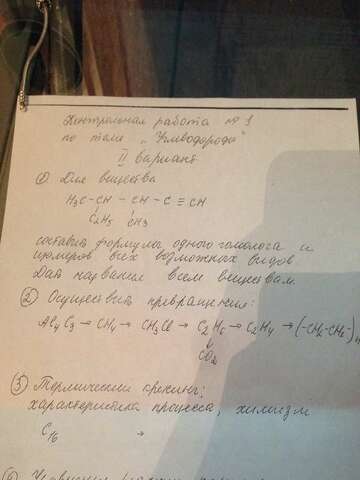 Контрольная работа № 1
по теме „Углеводороды"
II вариант
① Для вещества
H₃C - CH - CH - C ≡ CH
C₂H₅ CH₃
составить формулы одного гомолога и
изомеров всех возможных видов
Дать название всем веществам
② Осуществить превращения:
Al₄C₃ → CH₄ → CH₃Cl → C₂H₆ → C₂H₄ → (-CH₂-CH₂-)n
↓
CO₂
③ Термический крекинг;
характеристика процесса, химизм
C₁₆